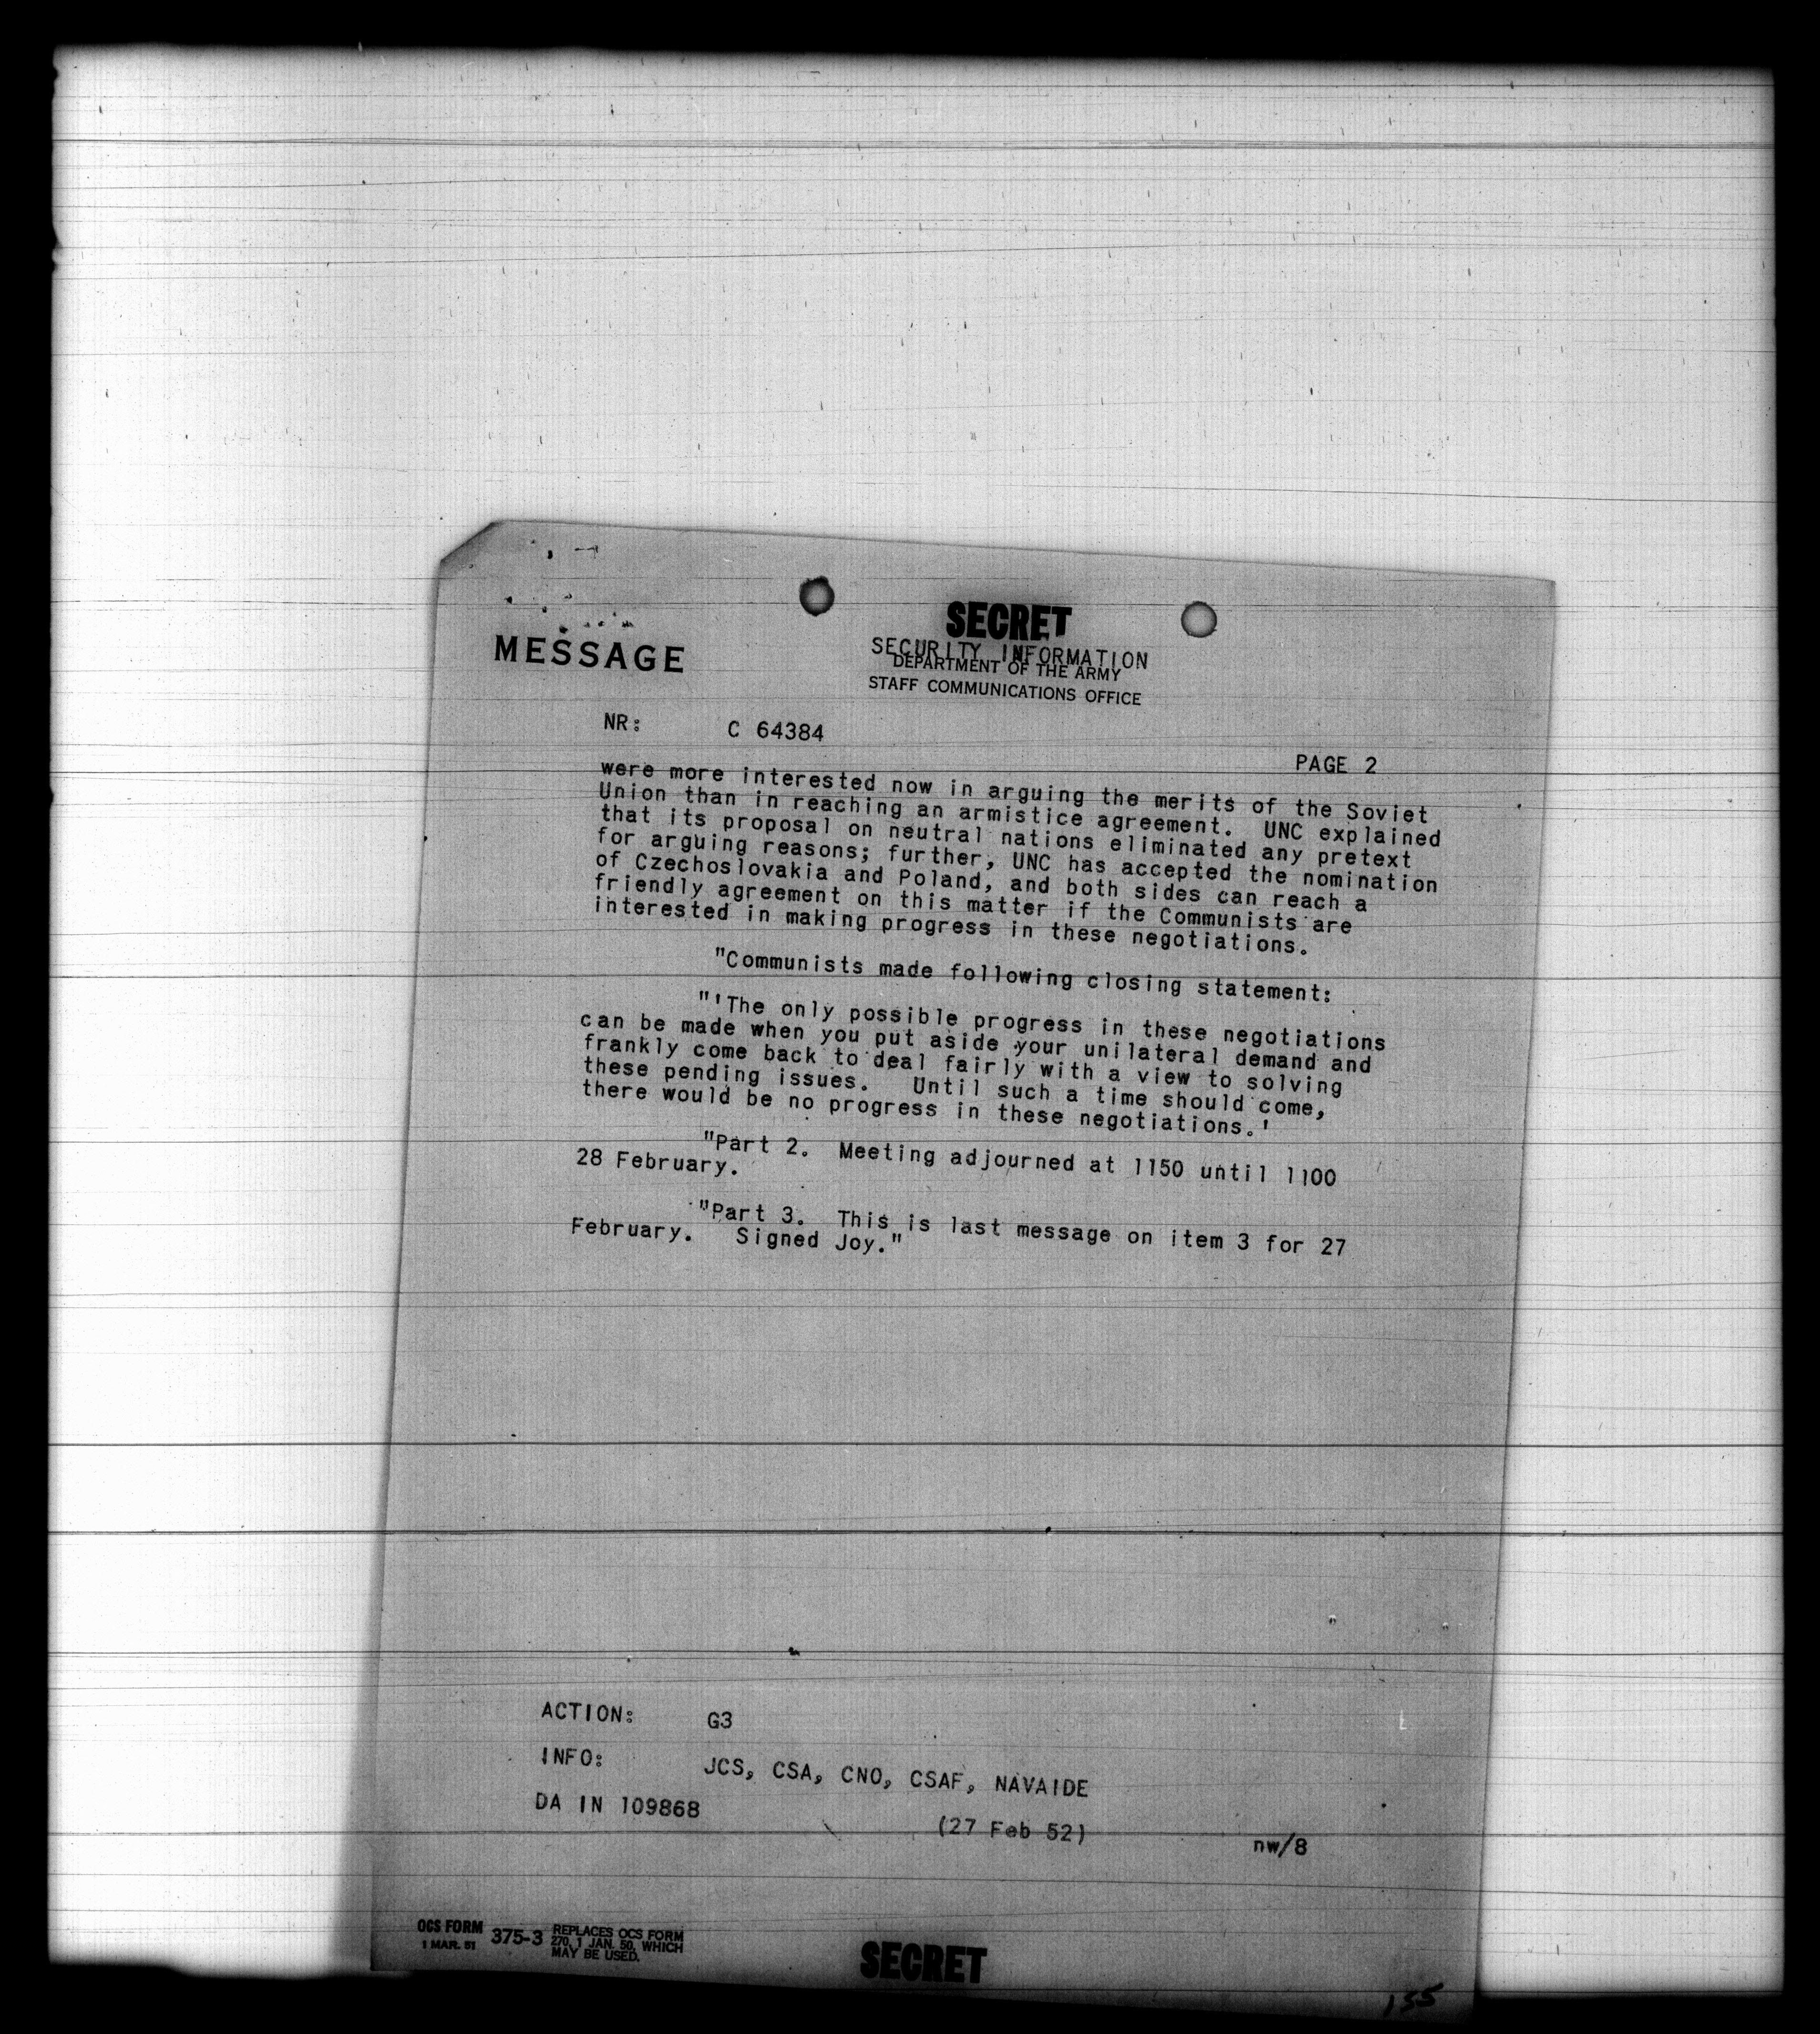 SECRET
SECURITY INFORMATION
MESSAGE
DEPARTMENT OF THE ARMY
STAFF COMMUNICATIONS OFFICE
NR: C 64384
PAGE 2
were more interested now in arguing the merits of the Soviet
Union than in reaching an armistice agreement. UNC explained
that its proposal on neutral nations eliminated any pretext
for arguing reasons; further, UNC has accepted the nomination
of Czechoslovakia and Poland, and both sides can reach a
friendly agreement on this matter if the Communists are
interested in making progress in these negotiations.
"Communists made following closing statement:
"'The only possible progress in these negotiations
can be made when you put aside your unilateral demand and
frankly come back to deal fairly with a view to solving
these pending issues. Until such a time should come,
there would be no progress in these negotiations.'
"Part 2. Meeting adjourned at 1150 until 1100
28 February.
"Part 3. This is last message on item 3 for 27
February. Signed Joy."
ACTION: G3
INFO: JCS, CSA, CNO, CSAF, NAVAIDE
DA IN 109868
(27 Feb 52)
nw/8
OCS FORM 375-3 REPLACES OCS FORM
1 MAR. 51 270, 1 JAN. 50, WHICH
MAY BE USED.
SECRET
155